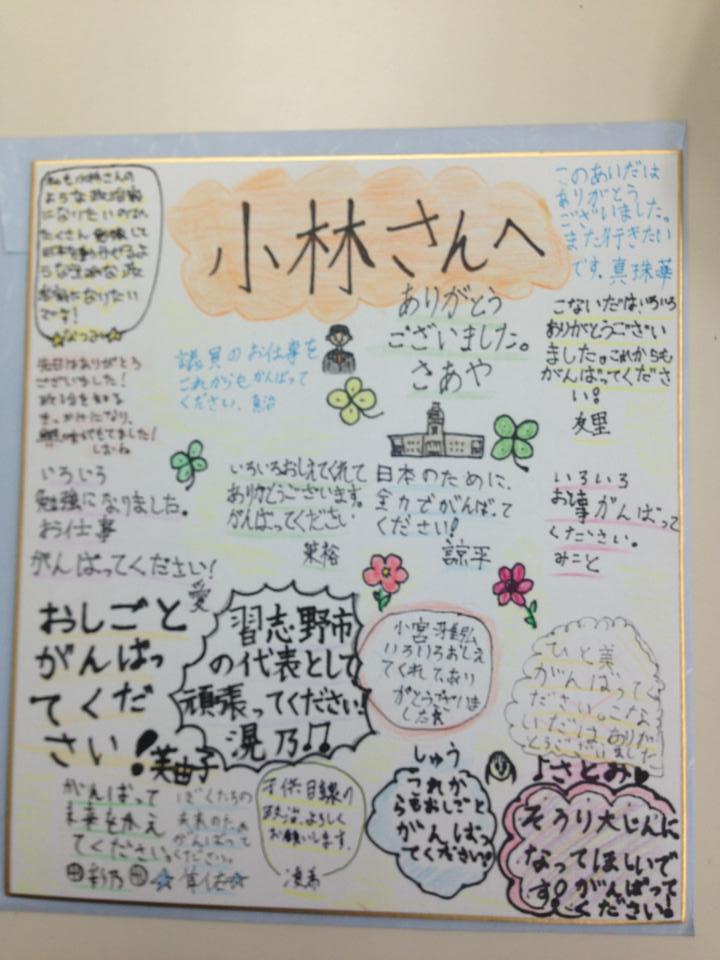 小林さんへ
私も小林さんの
ような政治家
になりたいので、
たくさん勉強して
日本を
です!
☆なつみ☆
このあいだは
ありがとう
ございました。
また行きたい
です。真珠華
先日はありがとう
ございました!
政治を知る
きっかけになり、
興味がもてました!
議員のお仕事を
これからもがんばって
ください、真治
ありがとう
ございました。
さあや
こないだは、いろいろ
ありがとうござい
ました。これからも
がんばってくださ
い!
友里
いろいろ
勉強になりました。
お仕事
がんばってください!
愛
いろいろおしえてくれて
ありがとうございます。
がんばってください
日本のために、
全力でがんばって
ください!
諒平
いろいろ
お仕事がんばって
ください。
みこと
おしごと
がんばっ
てくだ
さい!
美由子
習志野市
の代表として
頑張ってください!
滉乃♫
小宮 雅弘
いろいろおしえ
てくれて、あり
がとうございま
した
ひと美
がんばって
ください。こな
いだはありました
がんばって
未来をかえ
てください。
彩乃
ぼくたちの
未来のため
がんばって
ください。
子供目線の
政治、よろしく
お願いします。
しゅう
これか
らもおしごと
がんばっ
てください!
よさとみ♥
そうり大じんに
なってほしいで
す!がんばって
ください!